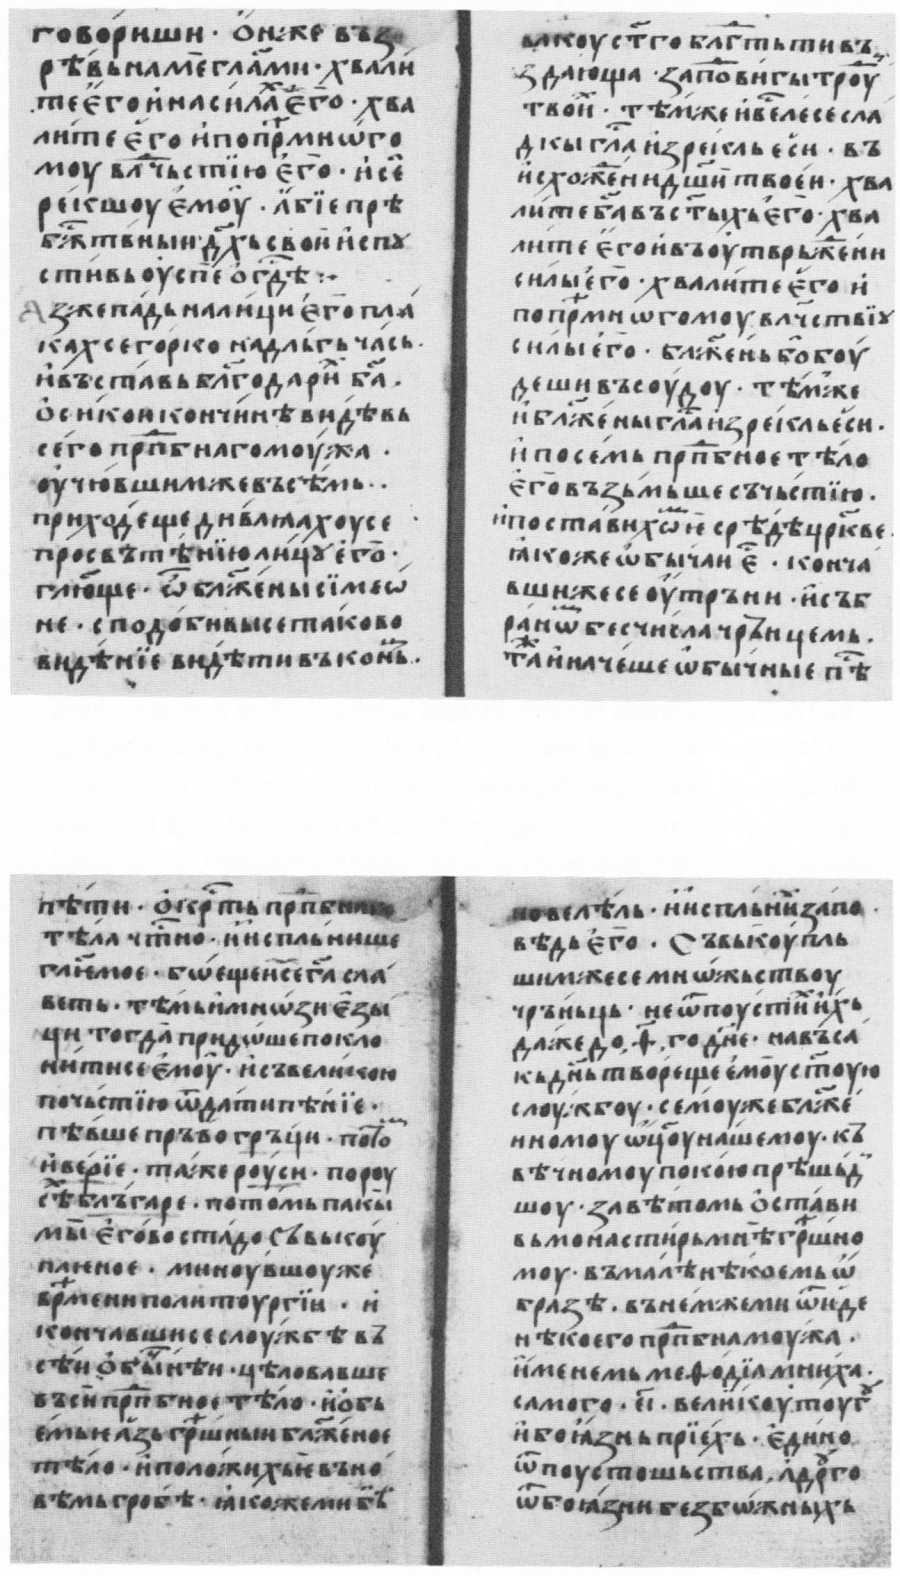 говори́ши · Ѻ҆н же въз
рѣ́вь на мѐ гл҃а́ми · хвали
те е҆го̀ и҆ на си́лах е҆го̀ · хва
ли́те е҆го̀ и҆ по прⷣѣмнѡго
моу влⷱ҇ьстїю е҆го̀ · и҆ сѐ
ре́кшоу е҆моу̀ · а҆бїе прѣ
бжⷭ҇твныи дх҃ь свои и҆спꙋ
стивь оу҆спе ѡ҆ гдⷭ҇ѣ :~
Аз же па́дь на лици е҆го̀ пла́
кахсе го́рко на дль́гь чась ·
и҆ въста́вь бл҃годари́хь ба҃ ·
ѻ҆ сиково́и кончи́нѣ видѣвь
се́го прⷣпбнаго моу́жа ·
оу҆чю́вшим же въсѣ́мь · ·
приходе́ще ди́влꙗхоусе
просвѣтѣ́нїю лицꙋ е҆го̀ ·
гл҃юще · ѽ блаже́ныи сїмеѡ́
не · сподо́би вы се тако́во
видѣ́нїе ви́дѣти въ ко́нць ·
влкоу ст҃го бл҃гⷣть ти въ
здаю́ща · за́повѣ́ди гы троу
твои · тѣ́мже и҆ веле́се сла́
дкы гл҃а и҆зре́кль е҆си · въ
и҆схожⷣе́ни дш҃и твое́и · хва
ли́те ба҃ въ ст҃ыхь е҆го̀ · хва
ли́те е҆го̀ и҆ въ оу҆тврьжⷣе́ни
си́лы е҆го̀ · хвали́те е҆го̀ и҆
по прⷣмнѡгомоу влⷱ҇ствїꙋ
си́лы е҆го̀ · бла́жень бо боу́
деши въ соу́доу · тѣ́мже
и҆ блаже́ны гла҃ и҆зре́кль е҆си ·
и҆ по се́мь прⷣпбное тѣ́ло
е҆го̀ възь́мьше съ чь́стїю ·
и҆ поста́вихѡм е҆ срѣдѣ цр҃кве ·
ꙗ҆ко́же ѡ҆бы́чаи е҆ⷭ · конча́
вши́ же се оу҆́трьни · и҆ съб
ра́ни ѡ҆ бесчи́сла чрьнце́мь ·
та́ж и҆ на́чеше ѡ҆бы́чные пѣ
пѣ́ти · ѻ҆крⷭ҇ть прⷣпбнаго
тѣ́ла чⷭ҇тно · и҆ и҆спль́нише
гл҃емое · боꙗ҆щеи́се га҃ сла́
веть · тѣ́мь и҆ мнѡ́зи е҆зы́
ци тогда̀ придѡ́ше покло
ни́тисе е҆моу̀ · и҆ съ вели́кою
поче́стїю ѿда́ти пѣ́нїе ·
пѣ́вше пръ́во гръ́ци · пото́м
и҆ве́рїе · та́же роу́си · по роу́
сѣх бль́гаре · пото́мь па́кы
мы̀ е҆го́во ста́до съвькоу́
пльное · миноу́вшоу же
врⷨмени по литоургїи · и҆
конча́вши се слоу́жбѣ въ
сѣ́и ѻ҆бы́чнѣи · цѣлова́вше
въси прⷣпбное тѣ́ло · и҆ обь
е́мь и҆ а҆зь грѣ́шныи блаже́ное
тѣ́ло · и҆ положи́хь е҆ въ но́
вѣмь гро́бѣ · ꙗ҆ко́же ми бѣ̀
повелѣ́ль · и҆ и҆спльни́х за́по
вѣдь е҆го̀ · Съвькоу́пль
шим же се мнѡ́жьствоу
чрь́ньць · не ѿпоусти́х и҆хь
да́же до · ѳ҃ · го дн҃е · на въса́
кь дн҃ь творе́ще е҆моу̀ ст҃оую
слоу́жбоу · семоу́же блаже́
нномоу ѡ҆ц҃оу на́шемоу · къ
вѣ́чномоу поко́ю прѣшь́д
шоу · завѣ́томь ѻ҆ста́ви
вь монасти́рь мнѣ̀ грѣ́шно
моу · въ ма́лѣ нѣ́коемь ѡ҆
бразѣ · въ не́мже ми ѿи́де
нѣ́коего прⷣпбна моу́жа ·
и҆менемь меѳо́дїа мни́ха ·
самого̀ · е҃і · вели́коу тоугоу
и҆ боꙗ҆́знь прїе́хь · е҆ди́но
ѿ поустошьства, а҆ дроу́го
ѿ боꙗ҆́зни безбѡ́жныхь